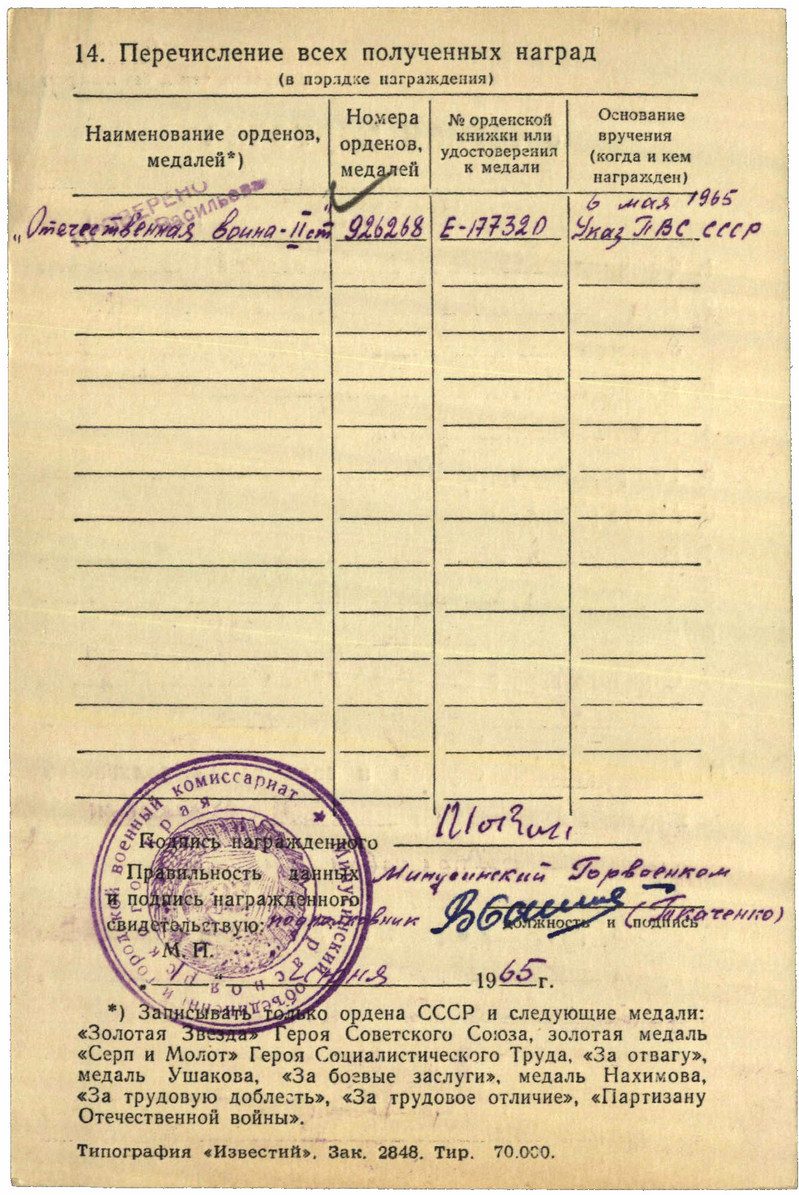 14. Перечисление всех полученных наград
(в порядке награждения)
Наименование орденов, медалей*)
Номера орденов, медалей
№ орденской книжки или удостоверения к медали
Основание вручения (когда и кем награжден)
ПРОВЕРЕНО
Васильева
„Отечественная воина - II ст" 926268 Е-177320 6 мая 1965
Указ ПВС СССР
городской военный комиссариат
Минусинский объединенный
Красноярского края
Подпись награжденного
Правильность данных Минусинский Горвоенком
и подпись награжденного
свидетельствую: подполковник (Ткаченко)
должность и подпись
М. П.
„1" Июня 1965 г.
*) Записывать только ордена СССР и следующие медали:
«Золотая Звезда» Героя Советского Союза, золотая медаль
«Серп и Молот» Героя Социалистического Труда, «За отвагу»,
медаль Ушакова, «За боевые заслуги», медаль Нахимова,
«За трудовую доблесть», «За трудовое отличие», «Партизану
Отечественной войны».
Типография «Известий». Зак. 2848. Тир. 70.000.